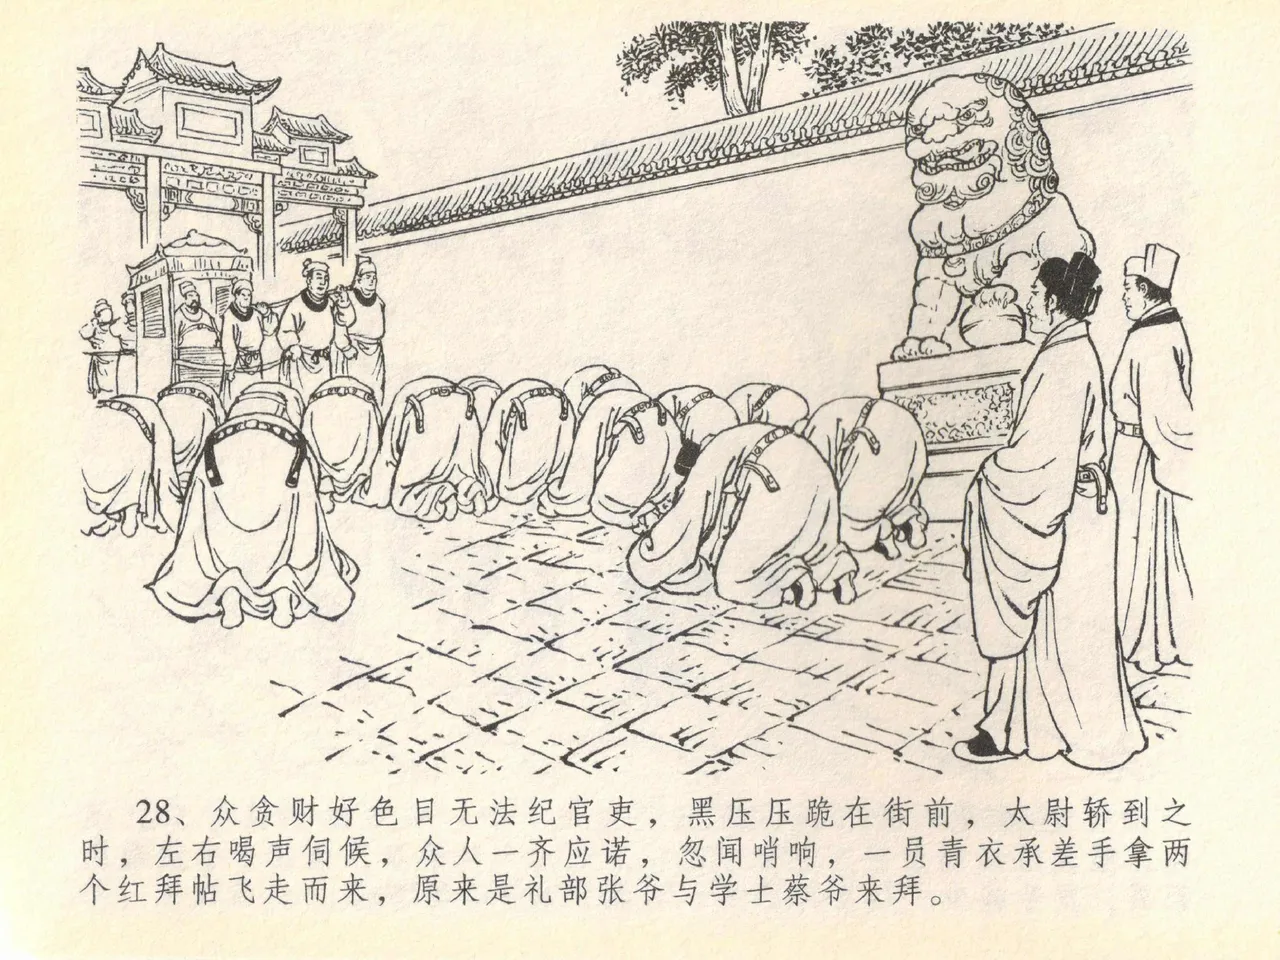 28、众贪财好色目无法纪官吏，黑压压跪在街前，太尉轿到之
时，左右喝声伺候，众人一齐应诺，忽闻哨响，一员青衣承差手拿两
个红拜帖飞走而来，原来是礼部张爷与学士蔡爷来拜。